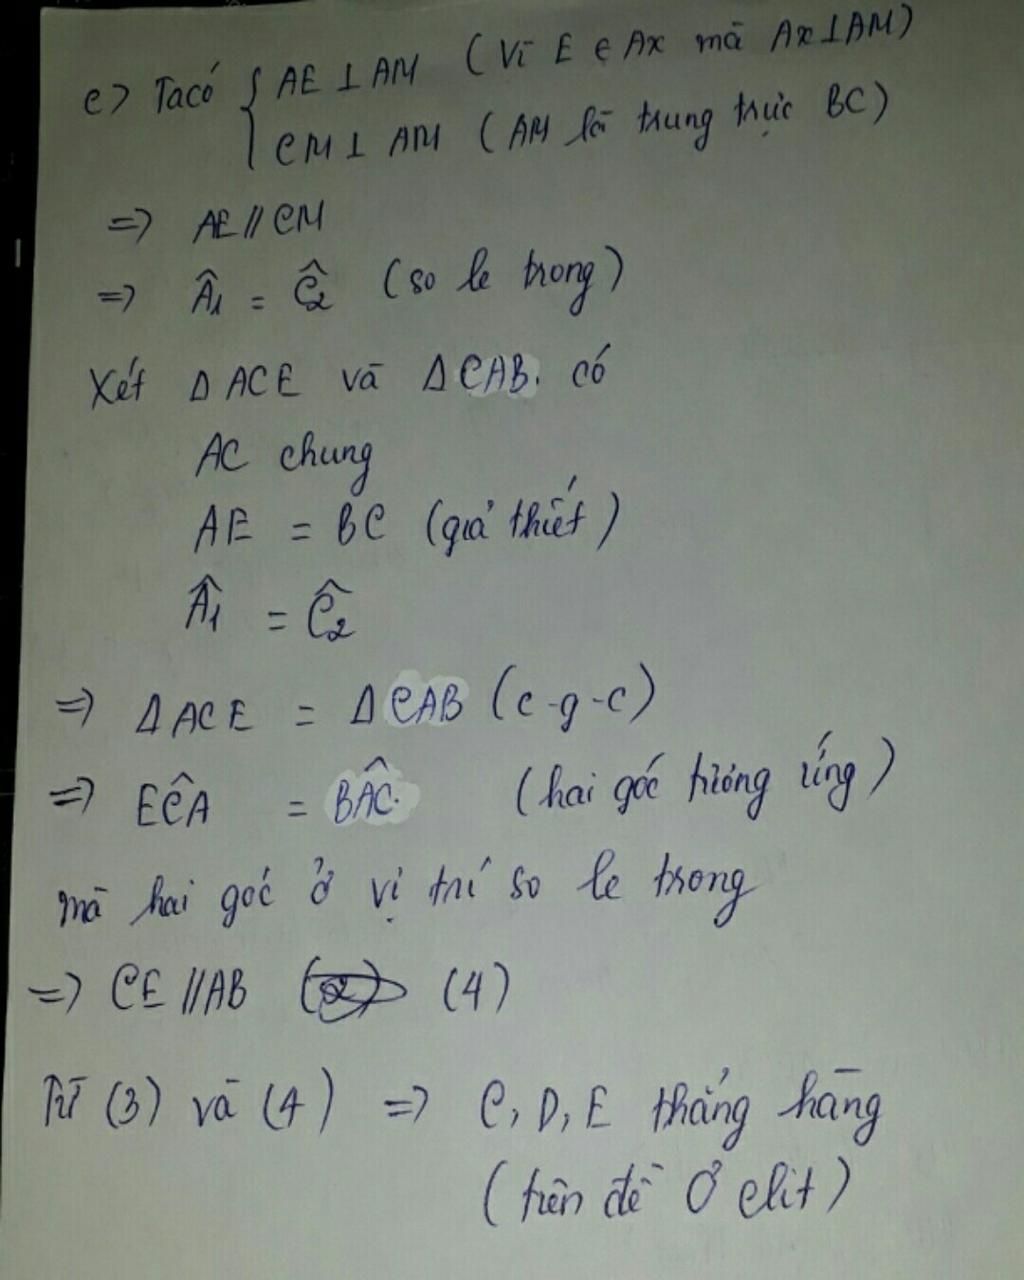 c) Ta có { AE ⊥ AM ( Vì E ∈ Ax mà Ax ⊥ AM )
CM ⊥ AM ( AM là trung trực BC )
=> AE // CM
=> Â1 = Ĉ2 ( so le trong )
Xét Δ ACE và Δ CAB. có
AC chung
AE = BC (giả thiết )
Â1 = Ĉ2
=> Δ ACE = Δ CAB ( c - g - c )
=> EĈA = BÂC. ( hai góc tương ứng )
mà hai góc ở vị trí so le trong
=> CE // AB (4)
Từ (3) và (4) => C, D, E thẳng hàng
( tiên đề Ơ clit )